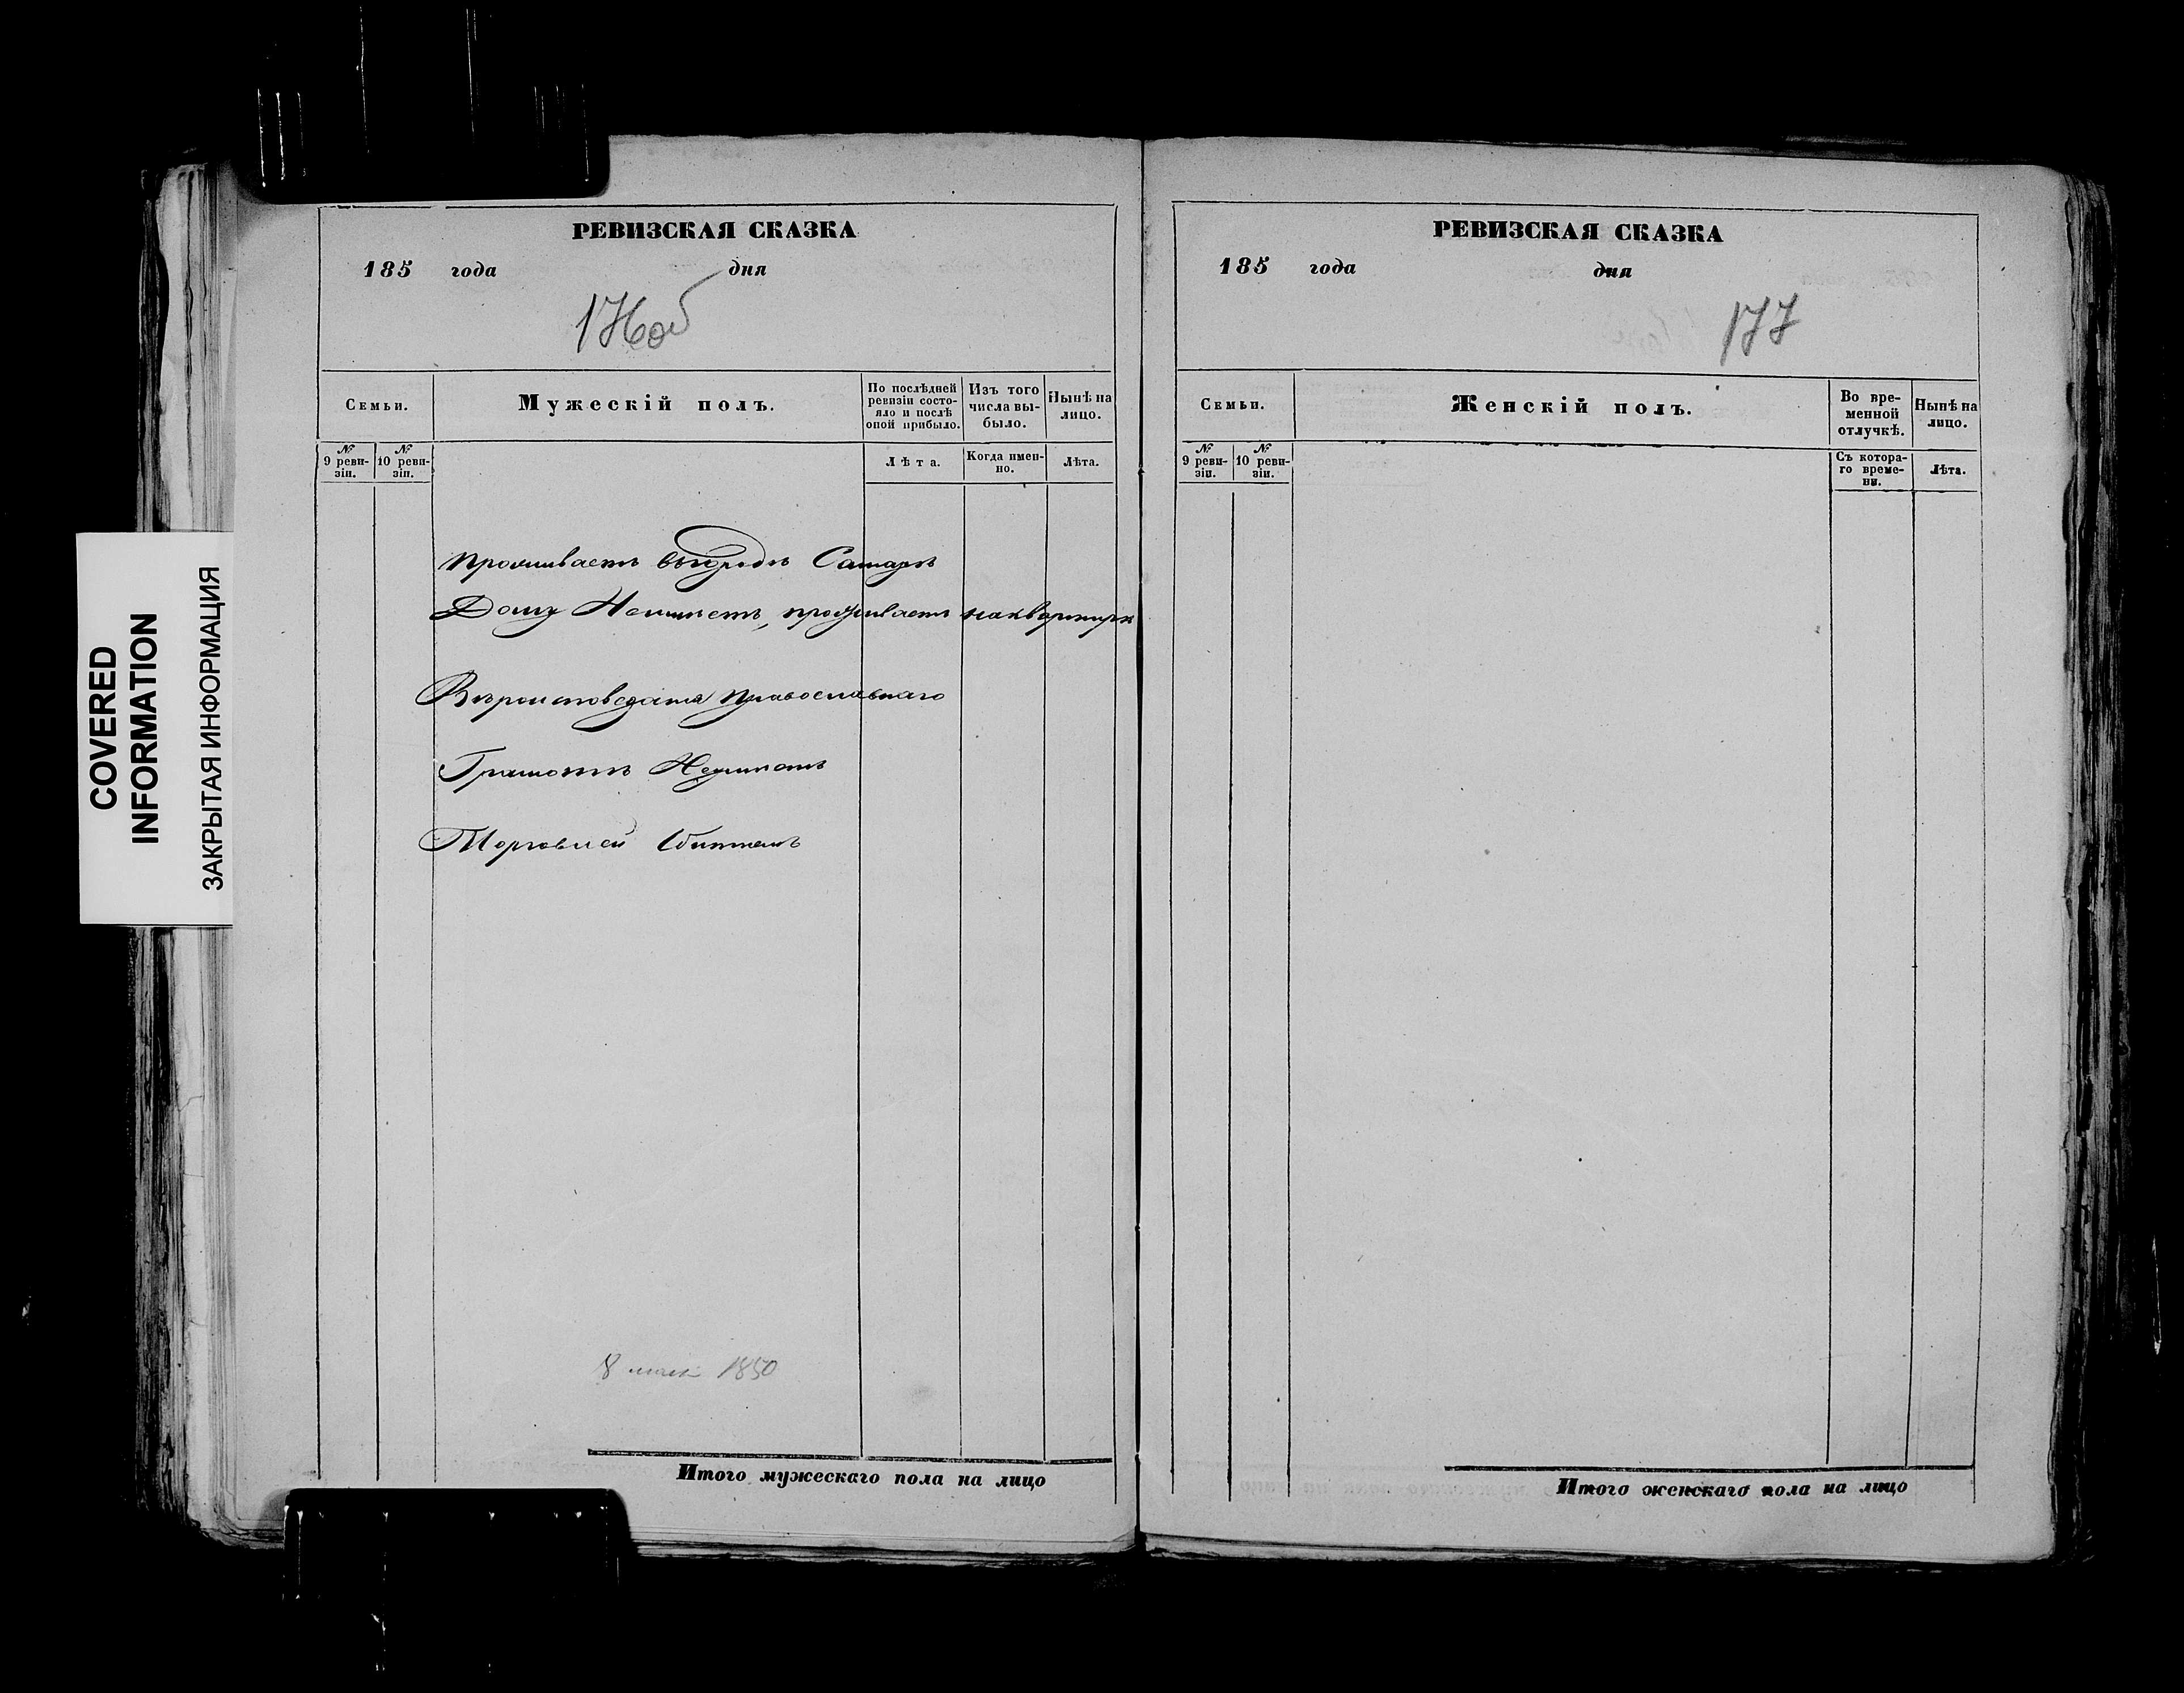 COVERED
INFORMATION
ЗАКРЫТАЯ ИНФОРМАЦИЯ
РЕВИЗСКАЯ СКАЗКА
185 года дня
176об
Семьи.
Мужескій полъ.
По послѣдней ревизіи состояло и послѣ оной прибыло.
Изъ того числа выбыло.
Нынѣ на лицо.
№ 9 ревизіи.
№ 10 ревизіи.
Лѣта.
Когда именно.
Лѣта.
Проживаетъ въ городѣ Самарѣ
Дому Неимѣетъ, проживаетъ наквартирѣ
Вѣроисповеданія Православнаго
Грамотѣ
Торговлей
8 1850
Итого мужескаго пола на лицо
РЕВИЗСКАЯ СКАЗКА
185 года дня
177
Семьи.
Женскій полъ.
Во временной отлучкѣ.
Нынѣ на лицо.
№ 9 ревизіи.
№ 10 ревизіи.
Съ котораго времени.
Лѣта.
Итого женскаго пола на лицо